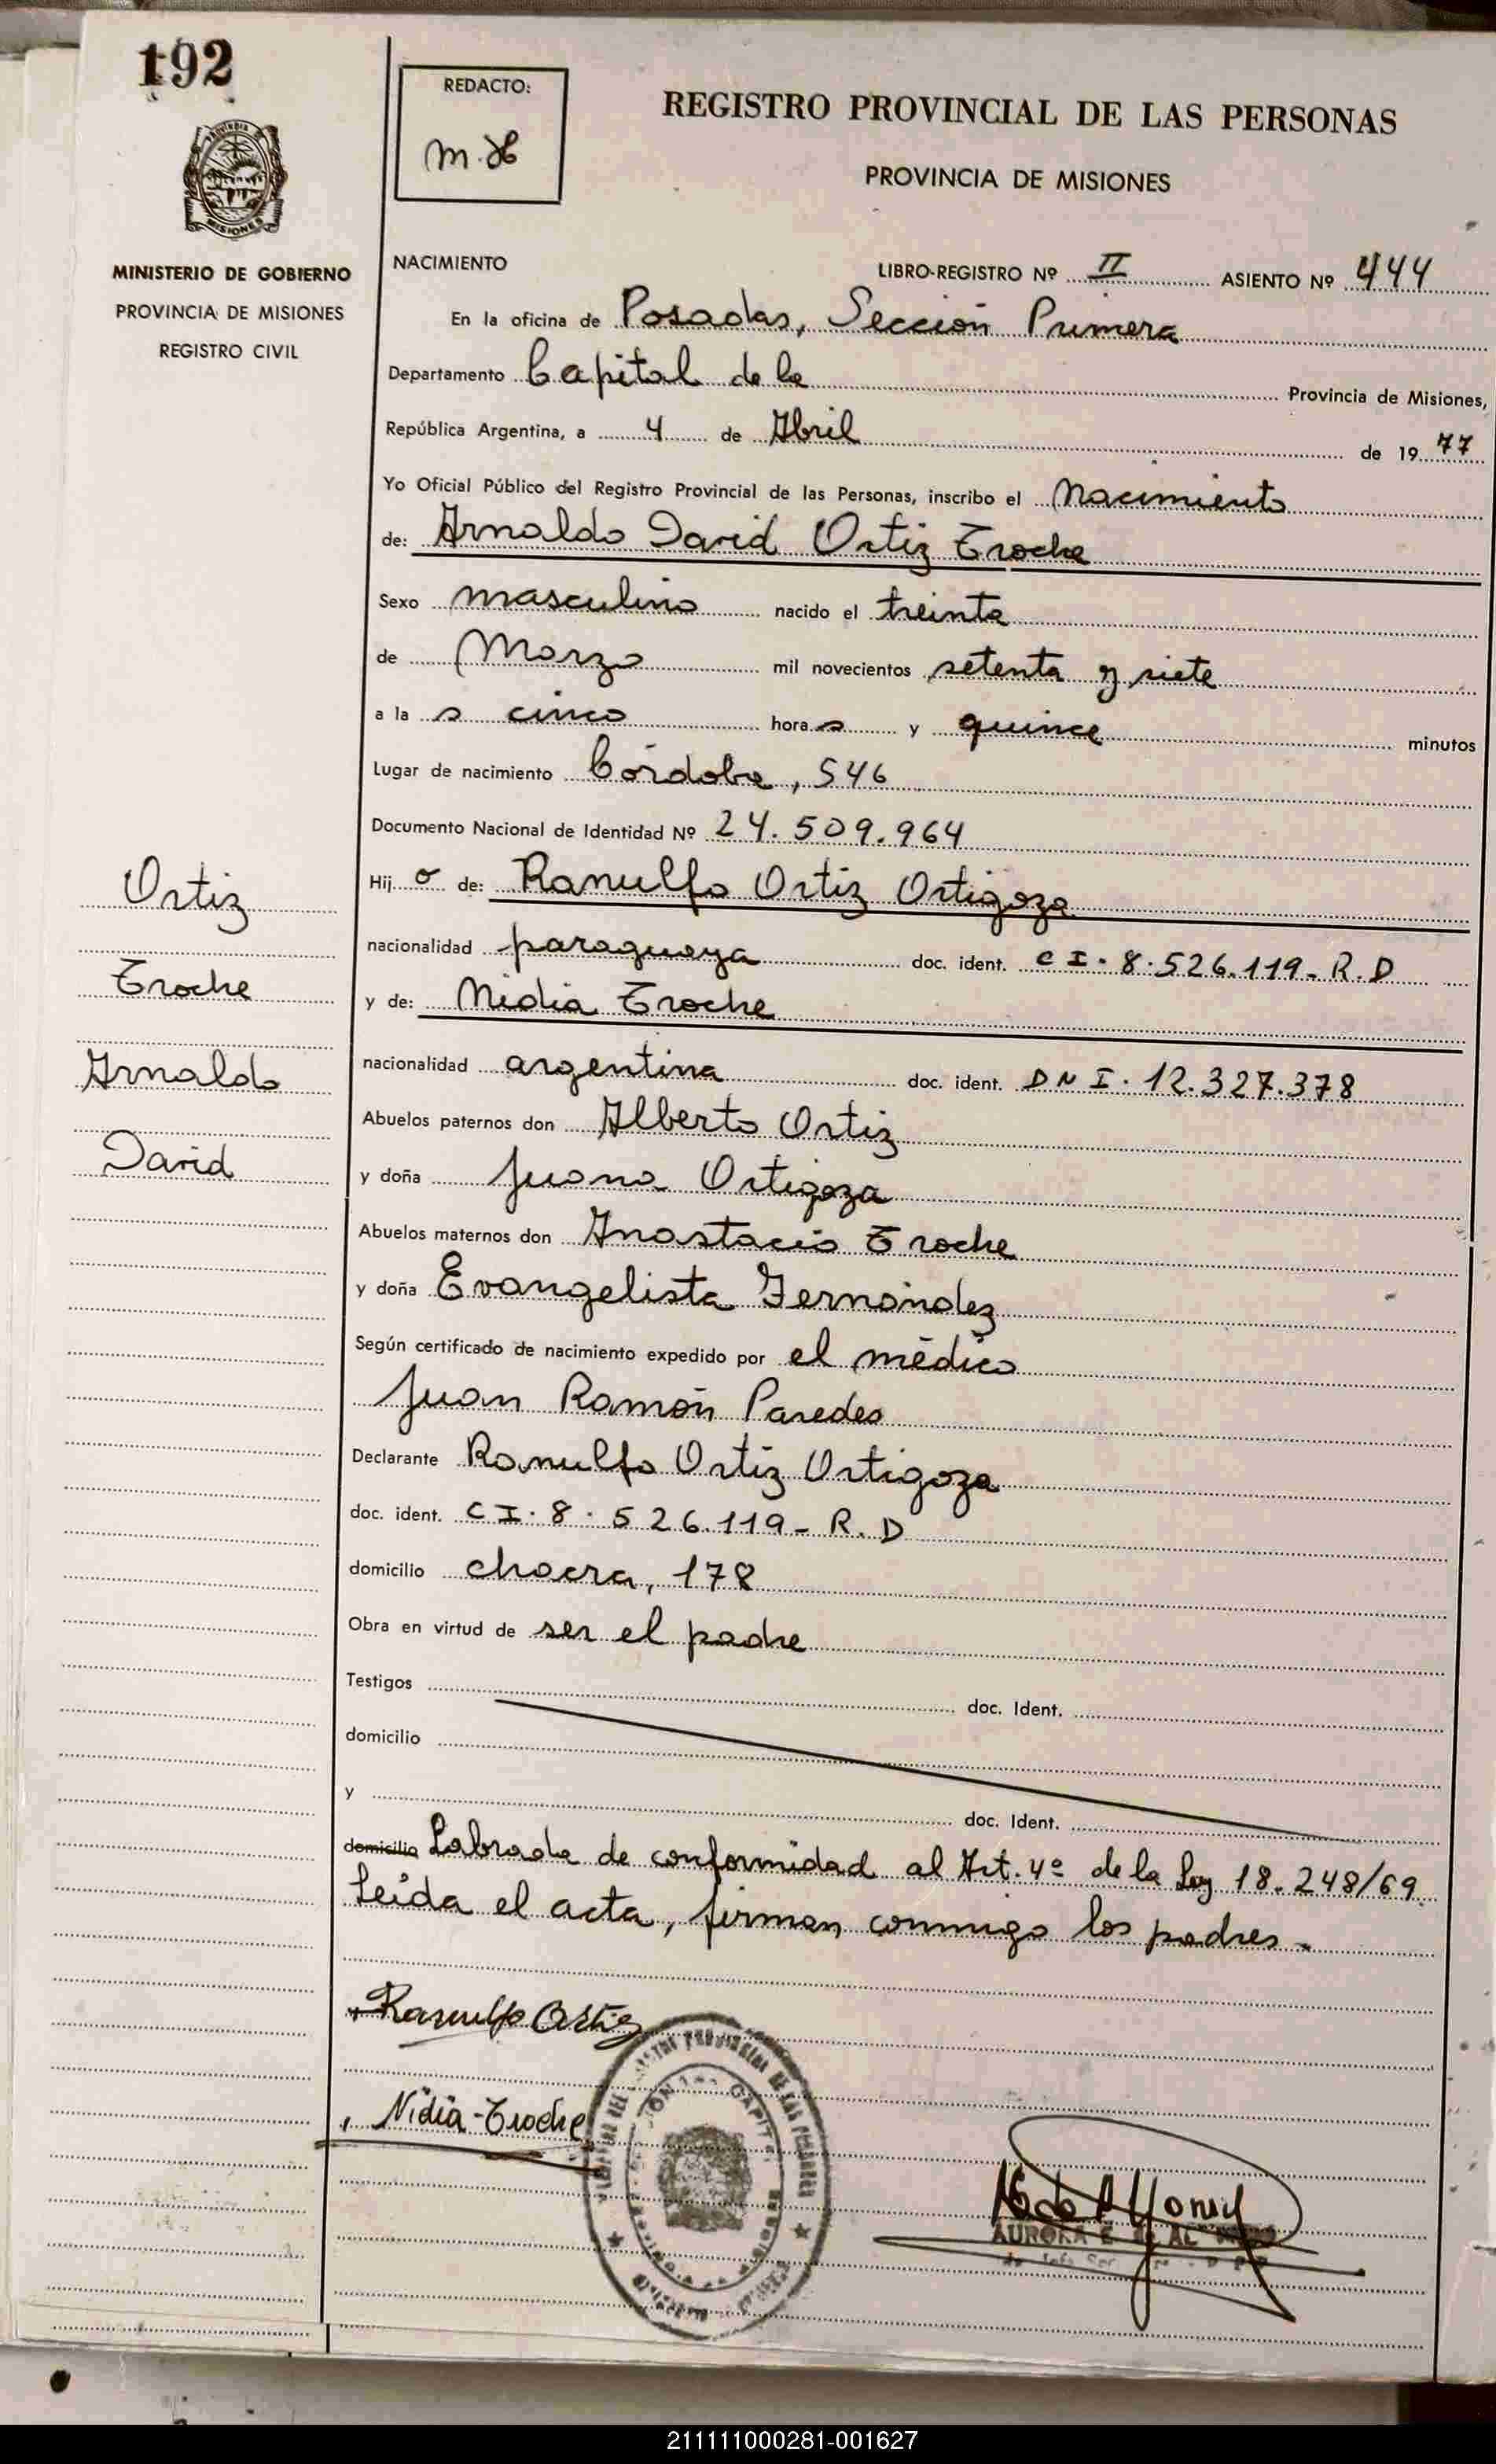 192
REDACTO:
REGISTRO PROVINCIAL DE LAS PERSONAS
PROVINCIA DE MISIONES
MISIONES
MINISTERIO DE GOBIERNO
PROVINCIA DE MISIONES
REGISTRO CIVIL
NACIMIENTO
LIBRO-REGISTRO Nº II ASIENTO Nº 444
En la oficina de Posadas, Sección Primera
Departamento Capital de la Provincia de Misiones,
República Argentina, a 4 de Abril de 1977
Yo Oficial Público del Registro Provincial de las Personas, inscribo el Nacimiento
de: Arnaldo David Ortiz Troche
Sexo masculino nacido el treinta
de Marzo mil novecientos setenta y siete
a la s cinco hora s y quince minutos
Lugar de nacimiento Córdoba, 546
Documento Nacional de Identidad Nº 24.509.964
Hij o de: Ranulfo Ortiz Ortigoza
nacionalidad paraguaya doc. ident. C I. 8.526.119-R.D
y de: Nidia Troche
nacionalidad argentina doc. ident. D N I. 12.327.378
Abuelos paternos don Alberto Ortiz
y doña Juana Ortigoza
Abuelos maternos don Anastacio Troche
y doña Evangelista Fernández
Según certificado de nacimiento expedido por el médico
Juan Ramón Paredes
Declarante Ranulfo Ortiz Ortigoza
doc. ident. C I. 8.526.119-R.D
domicilio chacra, 178
Obra en virtud de ser el padre
Testigos doc. Ident.
domicilio
y doc. Ident.
domicilio Labrada de conformidad al Art. 4º de la Ley 18.248/69.
Leída el acta, firman conmigo los padres.
Ortiz
Troche
Arnaldo
David
Ranulfo Ortiz
Nidia Troche
AURORA E.
211111000281-001627